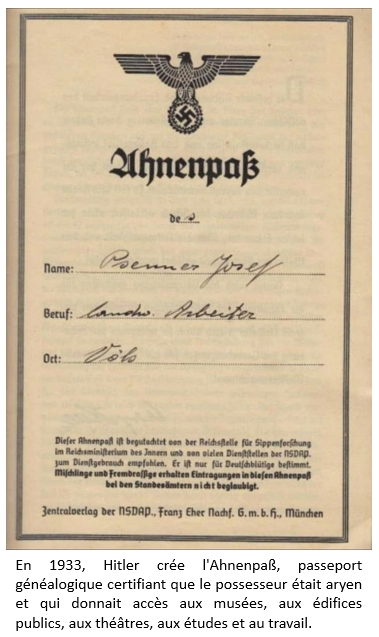 Ahnenpaß
des
Name: Psenner Josef
Beruf: landw. Arbeiter
Ort: Völs
Dieser Ahnenpaß ist begutachtet von der Reichsstelle für Sippenforschung
im Reichsministerium des Innern und von vielen Dienststellen der NSDAP.
zum Dienstgebrauch empfohlen. Er ist nur für Deutschblütige bestimmt.
Mischlinge und Fremdrassige erhalten Eintragungen in diesen Ahnenpaß
bei den Standesämtern nicht beglaubigt.
Zentralverlag der NSDAP., Franz Eher Nachf. G.m.b.H., München
En 1933, Hitler crée l'Ahnenpaß, passeport
généalogique certifiant que le possesseur était aryen
et qui donnait accès aux musées, aux édifices
publics, aux théâtres, aux études et au travail.